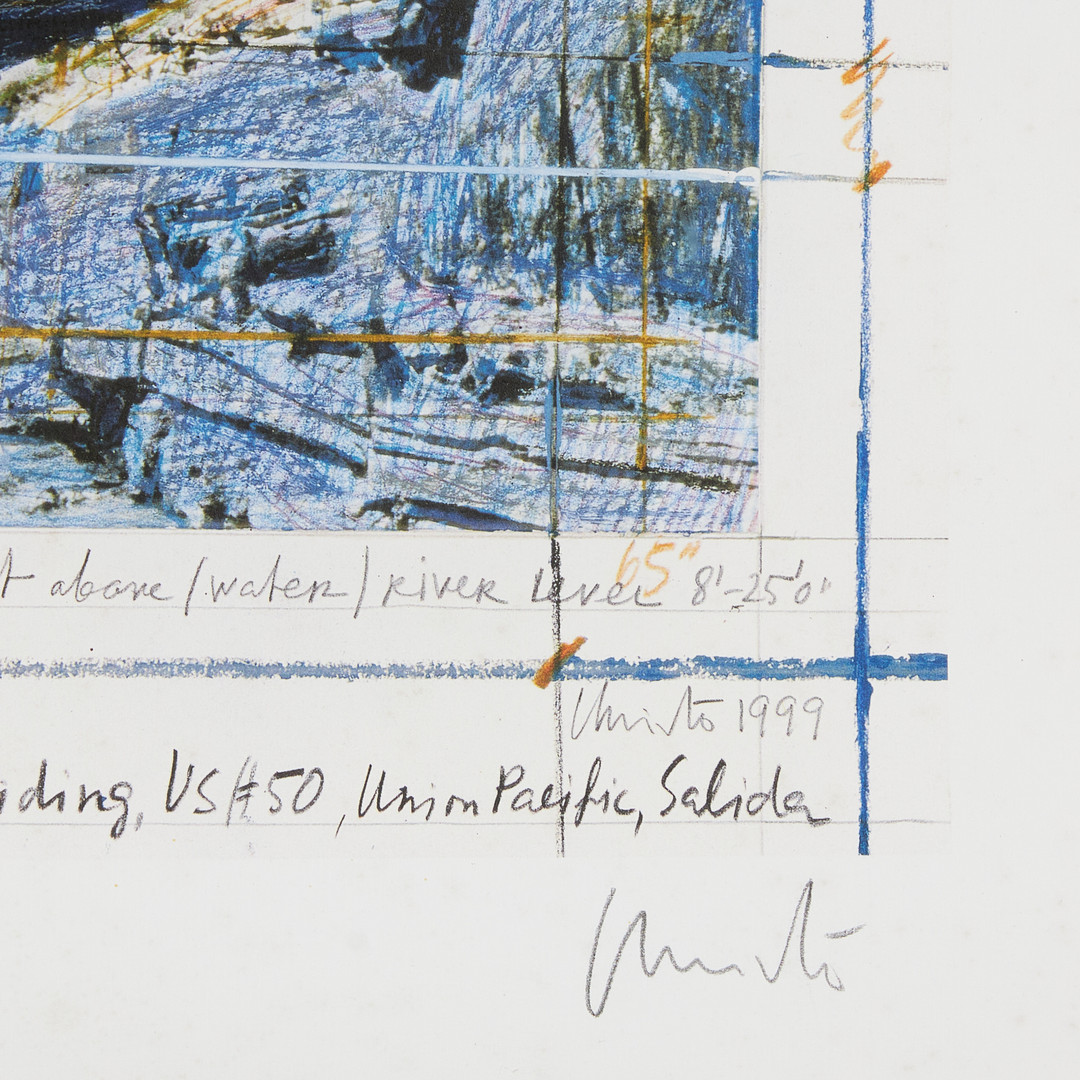 t above / water / river level 8'-25'0"
65"
Christo 1999
ding, US#50, Union Pacific, Salida
Christo